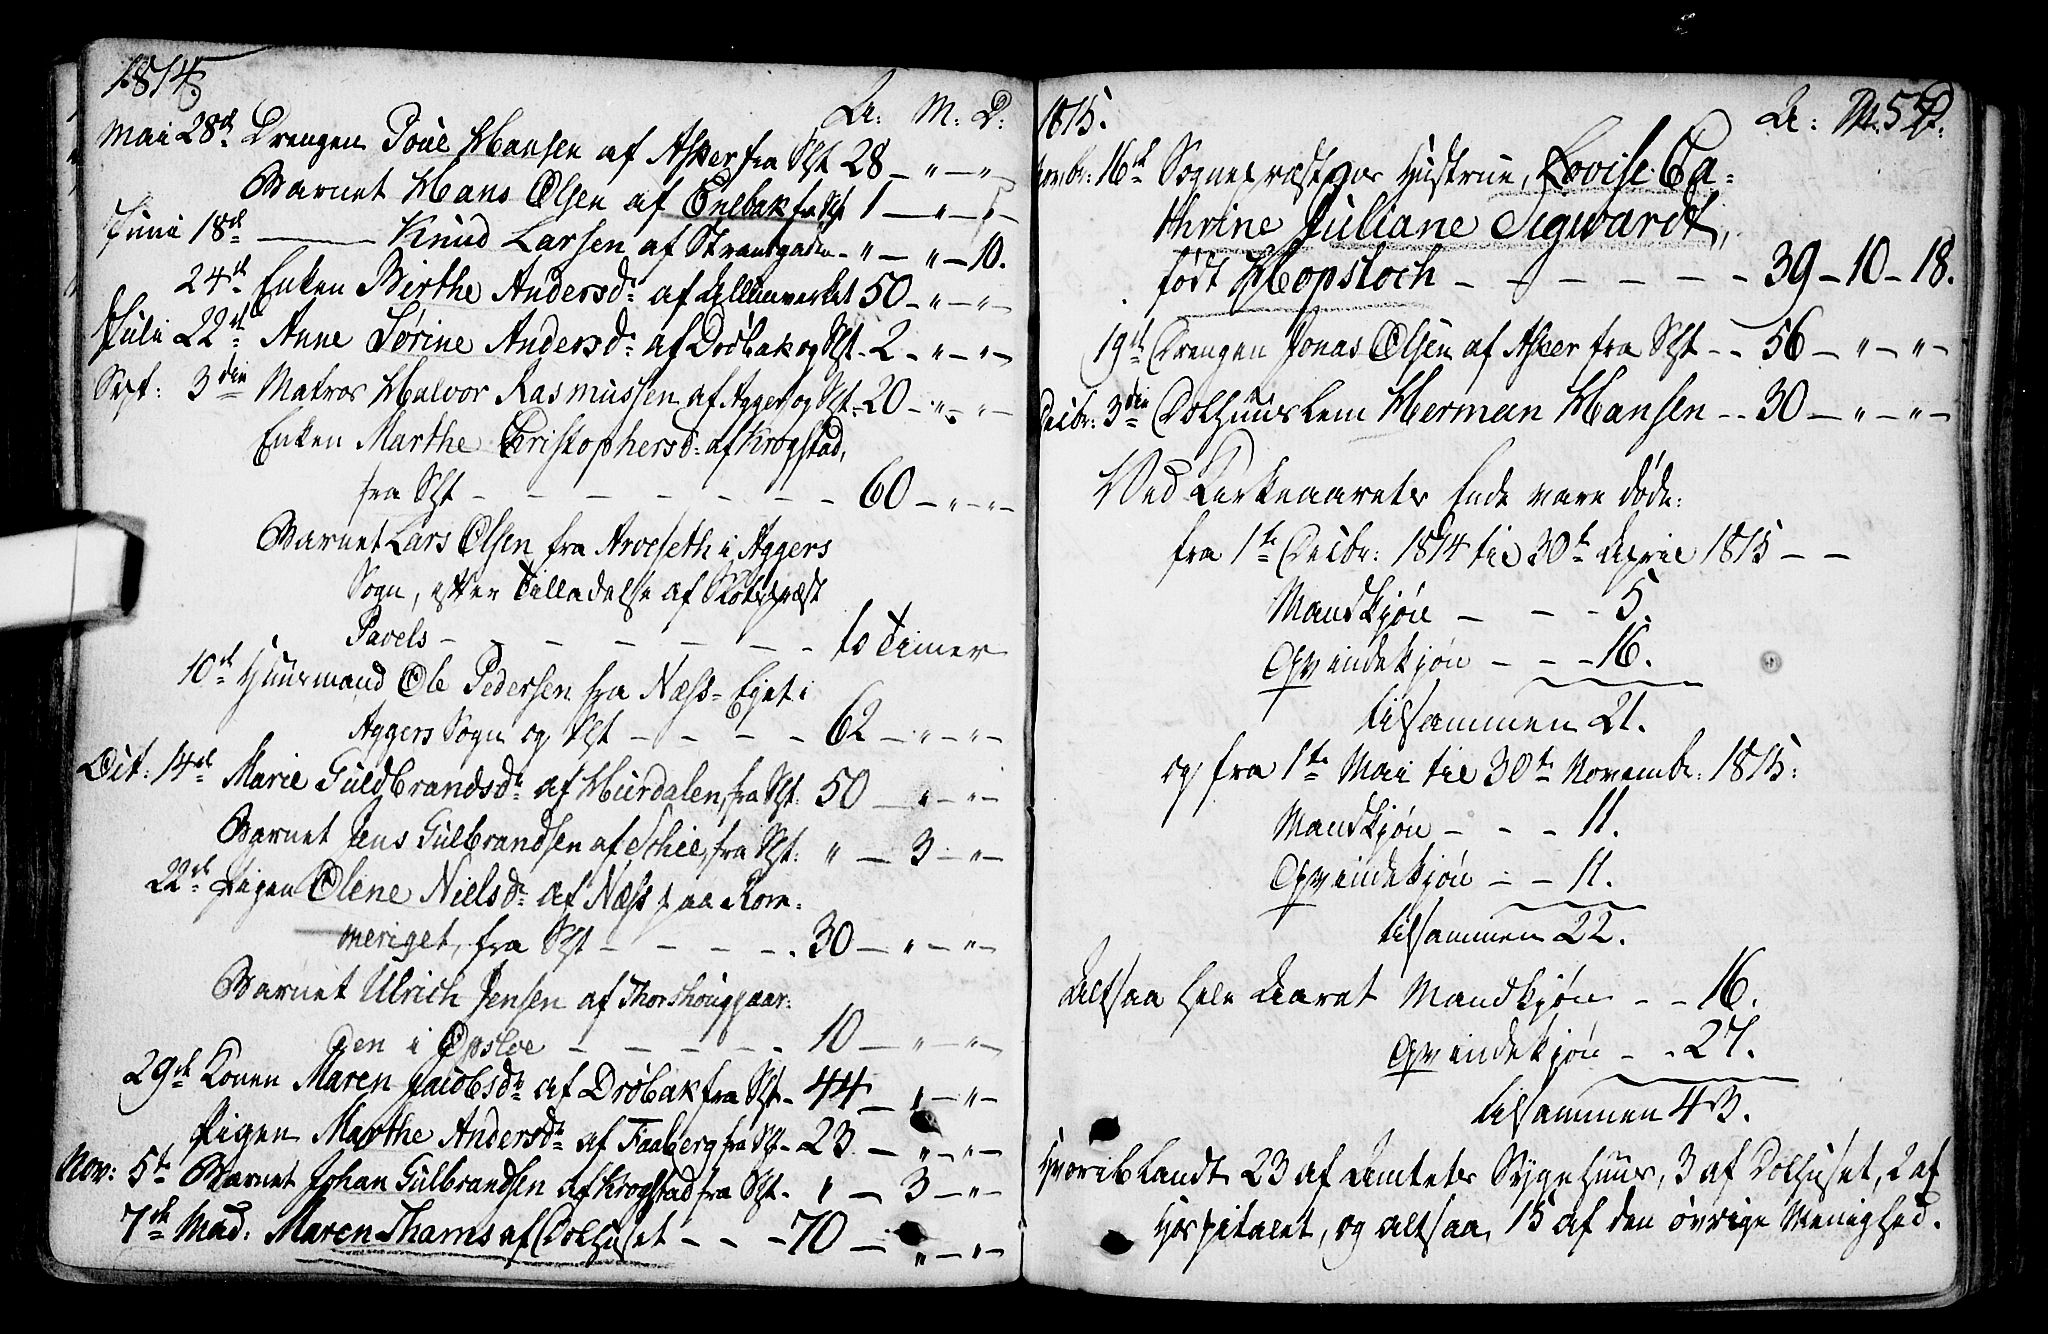 1815.
A: M: D:
Mai 28de Drengen Poul Hansen af Asker fra Sgt 28 – " – "
Barnet Hans Olsen af Enebak fra Sgt 1 – " –
Juni 18de — Knud Larsen af Strandgaden - " – " – 10.
24de Enken Birthe Andersd: af Allunverket 50 – " – "
Juli 22de Anne Sørine Andersd: af Drøbak og Sgt - 2 – " – "
Sept: 3die Matros Halvor Rasmussen af Agger og Sgt - 20 – " – "
Enken Marthe Christophersd: af Krogstad,
fra Sgt – – – – – – – 60 – " – "
Barnet Lars Olsen fra Arveseth i Aggers
Sogn, efter Tilladelse af Slotspræst
Pavels – – – – – – to Timer
10de Huusmand Ole Pedersen fra Næss-Ejet i
Aggers Sogn og Sgt – – – – 62 – " – "
Oct: 14de Marie Guldbrandsd: af Hurdalen, fra Sgt: 50 – " – "
Barnet Jens Gulbrandsen af Schie, fra Sgt: " – 3 – "
22de Pigen Olene Nielsd: af Næss paa Rom-
meriget, fra Sgt – – – – 30 – " – "
Barnet Ulrich Jensen af Thorshouggaar-
den i Opsloe – – – – – 10 – " – "
29de Konen Maren Jacobsd: af Drøbak fra Sgt - 44 – " – "
Pigen Marthe Andersd: af Faaberg fra Sgt - 23 – " – "
Nov: 5te Barnet Johan Gulbrandsen af Krogstad fra Sgt - " – 3 – "
7de Mad: Maren Thams af Dolhuset – – – 70 – " – "
1815.
A: M: D:
57
Novbr: 16de Sognepræst Hustrue, Lovise Ca-
thrine Juliane Sigwardt,
født Hopstoch – – – – – – 39 – 10 – 18.
19de Drengen Jonas Olsen af Asker fra Sgt – – 56 – " – "
Decbr: 3die Dolhuuslem Herman Hansen – – 30 – " – "
Ved Kirkeaarets Ende vare døde:
fra 1te Decbr: 1814 til 30te April 1815 – –
Mandkjøn – – – 5.
Qvindekjøn – – – 16.
tilsammen 21.
og fra 1te Mai til 30te Novembr: 1815:
Mandkjøn – – – 11.
Qvindekjøn – – 11.
tilsammen 22.
Altsaa hele Aaret Mandkjøn – – 16.
Qvindekjøn – – 27.
tilsammen 43.
Hvoriblandt 23 af Amtets Sygehuus, 3 af Dolhuset, 2 af
Hospitalet, og altsaa 15 af den øvrige Menighed.